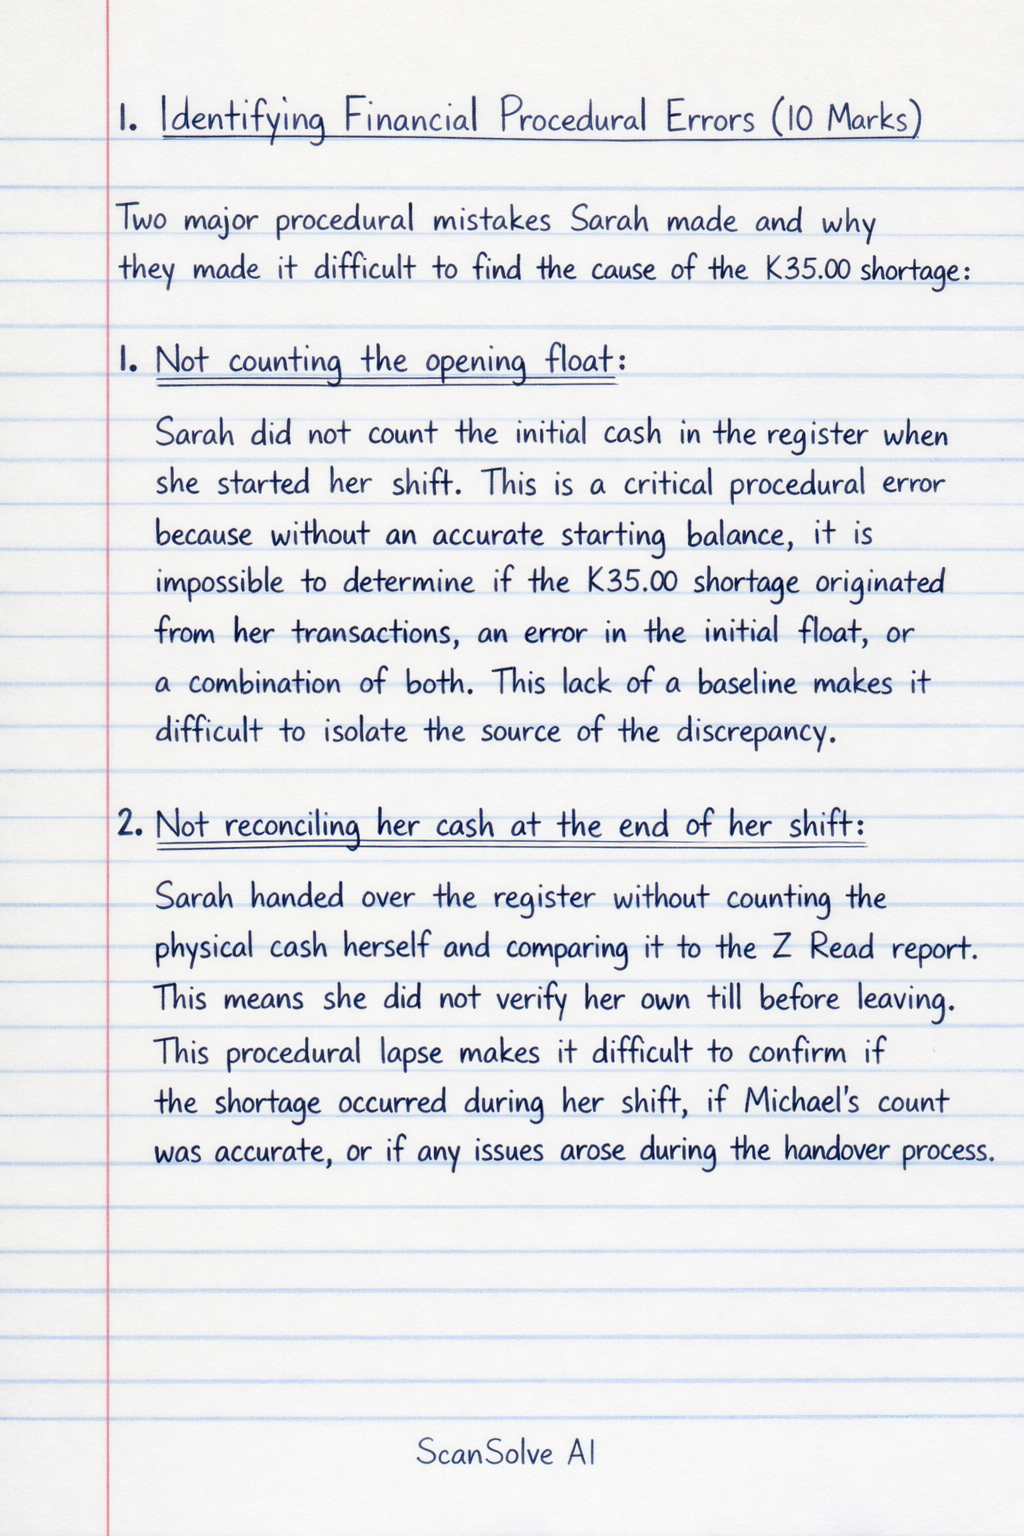 1. Identifying Financial Procedural Errors (10 Marks)
Two major procedural mistakes Sarah made and why
they made it difficult to find the cause of the K35.00 shortage:
1. Not counting the opening float:
Sarah did not count the initial cash in the register when
she started her shift. This is a critical procedural error
because without an accurate starting balance, it is
impossible to determine if the K35.00 shortage originated
from her transactions, an error in the initial float, or
a combination of both. This lack of a baseline makes it
difficult to isolate the source of the discrepancy.
2. Not reconciling her cash at the end of her shift:
Sarah handed over the register without counting the
physical cash herself and comparing it to the Z Read report.
This means she did not verify her own till before leaving.
This procedural lapse makes it difficult to confirm if
the shortage occurred during her shift, if Michael's count
was accurate, or if any issues arose during the handover process.
ScanSolve AI